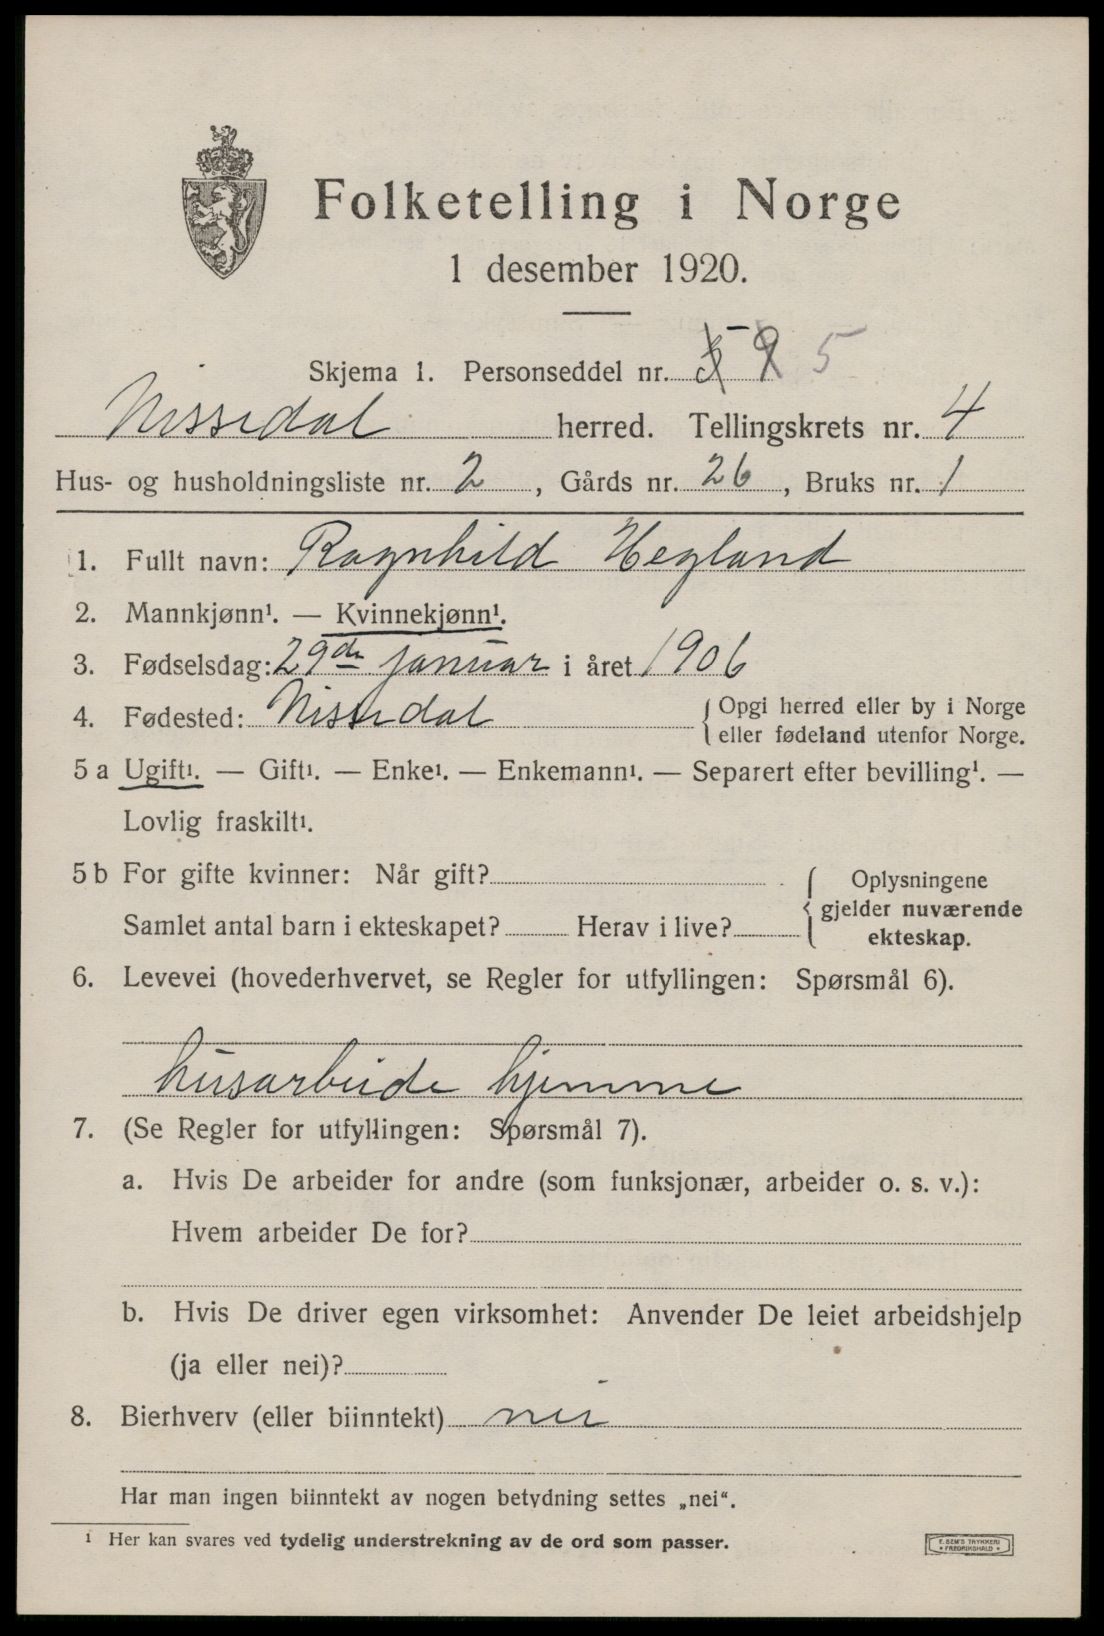 Folketelling i Norge
1 desember 1920.
Skjema 1. Personseddel nr. 5
Nissedal herred. Tellingskrets nr. 4
Hus- og husholdningsliste nr. 2, Gårds nr. 26, Bruks nr. 1
1. Fullt navn: Ragnhild Hegland
2. Mannkjønn¹. — Kvinnekjønn¹.
3. Fødselsdag: 29de januar i året 1906
4. Fødested: Nissedal { Opgi herred eller by i Norge
eller fødeland utenfor Norge.
5 a Ugift¹. — Gift¹. — Enke¹. — Enkemann¹. — Separert efter bevilling¹. —
Lovlig fraskilt¹.
5 b For gifte kvinner: Når gift?
Samlet antal barn i ekteskapet? Herav i live?
{ Oplysningene
gjelder nuværende
ekteskap.
6. Levevei (hovederhvervet, se Regler for utfyllingen: Spørsmål 6).
husarbeide hjemme
7. (Se Regler for utfyllingen: Spørsmål 7).
a. Hvis De arbeider for andre (som funksjonær, arbeider o. s. v.):
Hvem arbeider De for?
b. Hvis De driver egen virksomhet: Anvender De leiet arbeidshjelp
(ja eller nei)?
8. Bierhverv (eller biinntekt) nei
Har man ingen biinntekt av nogen betydning settes „nei“.
¹ Her kan svares ved tydelig understrekning av de ord som passer.
E. SEM'S TRYKKERI
• FREDRIKSHALD •